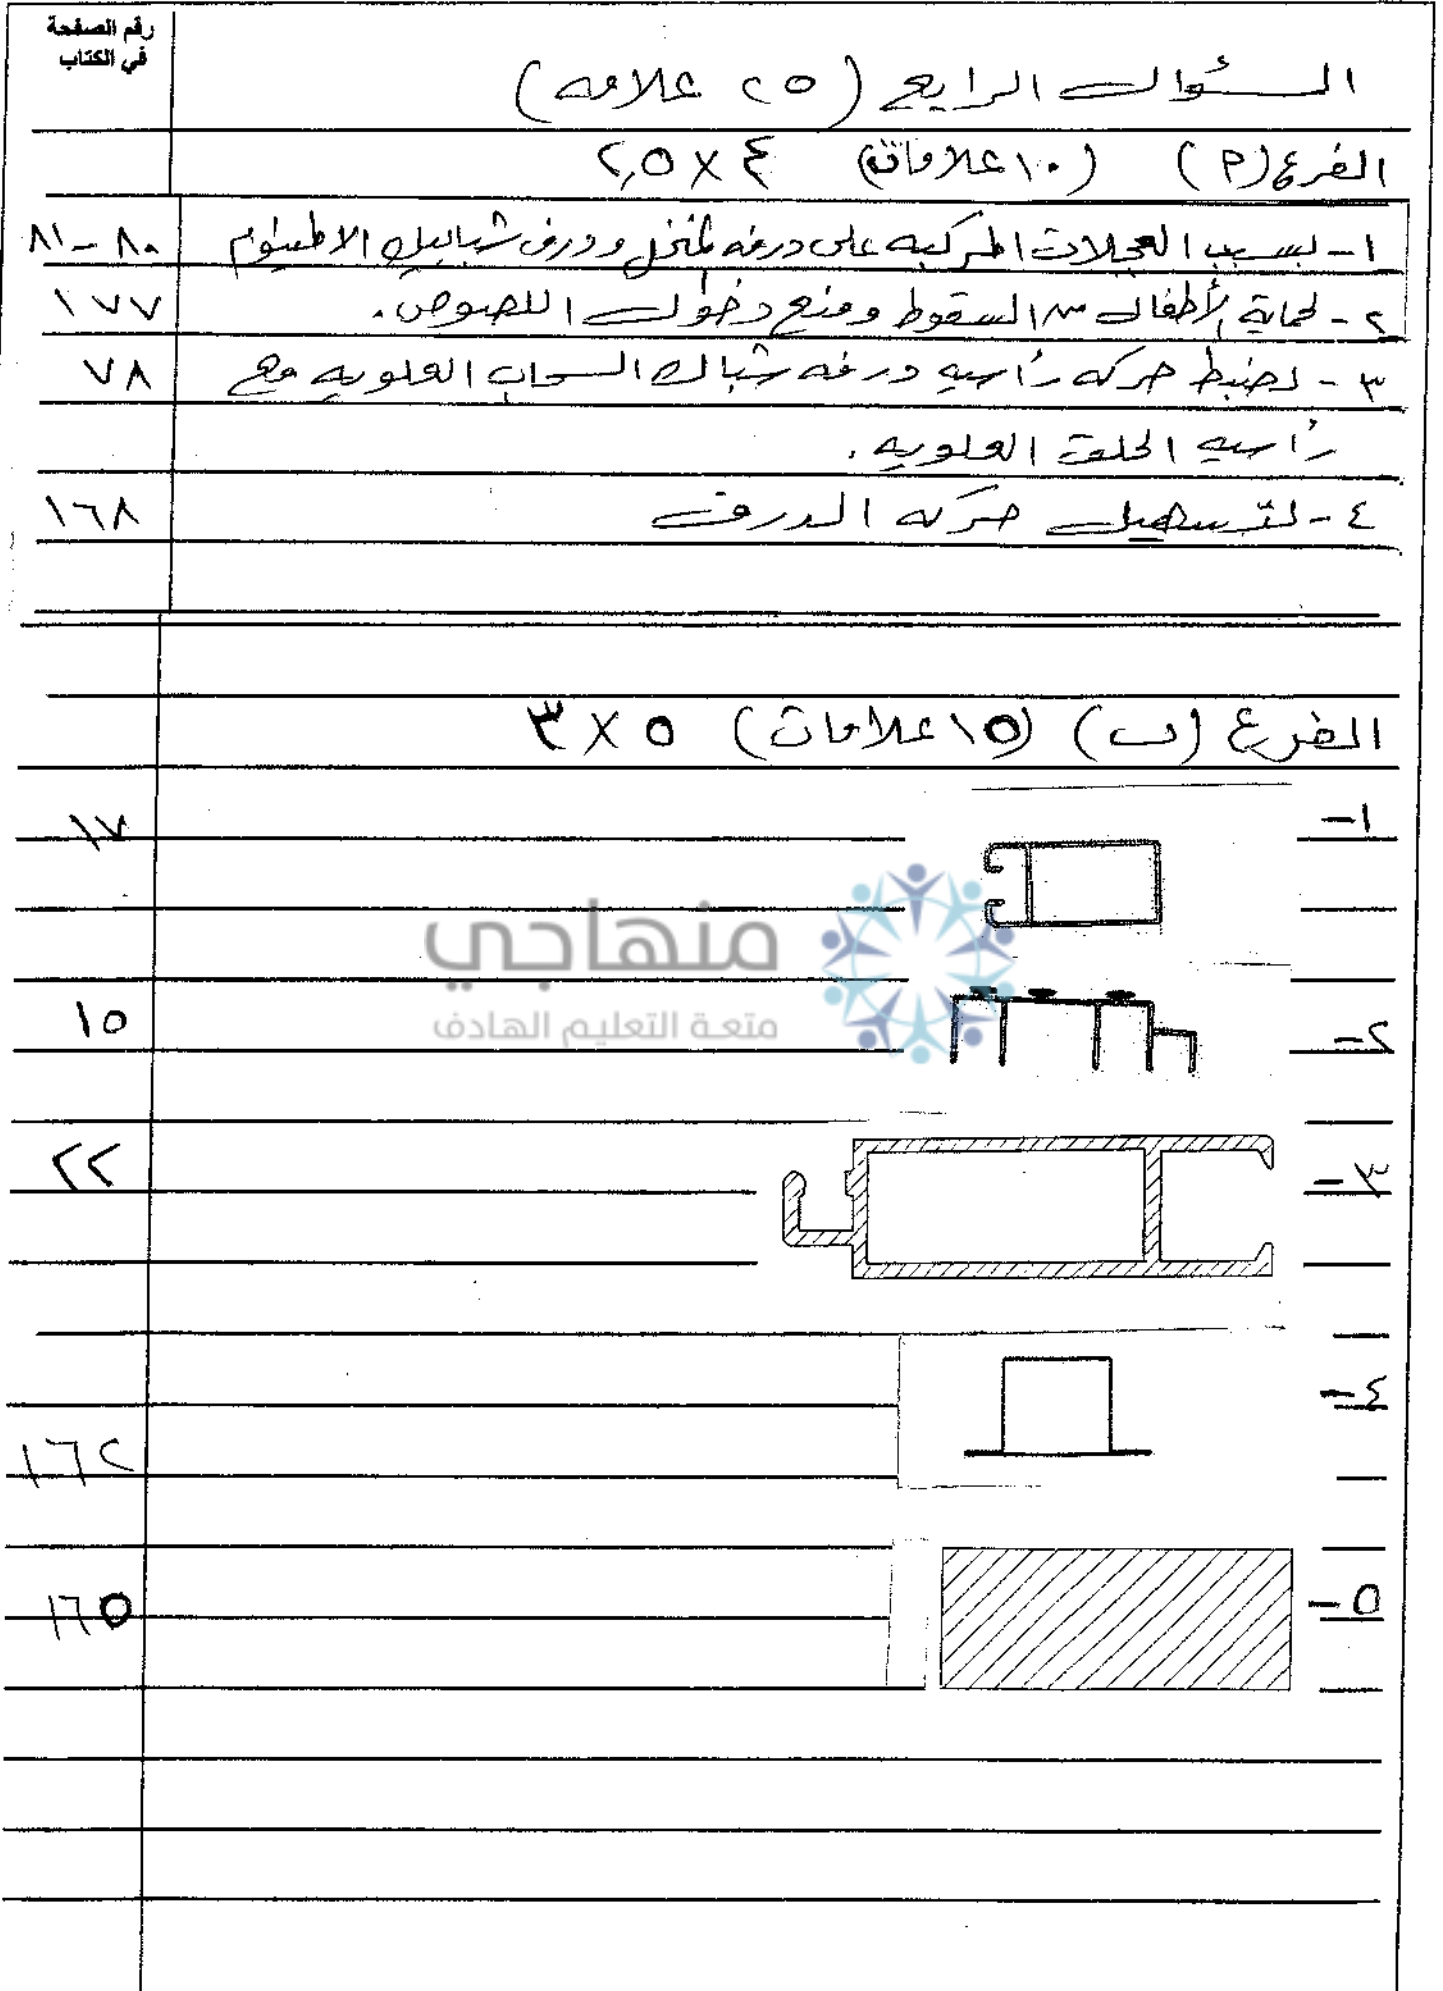 رقم الصفحة
في الكتاب
السؤال الرابع (٢٥ علامه)
الفرع (٢) (١٠ علامات) ٤ × ٢,٥
١- بسبب العجلات المركبه على درفه المنخل ودرف شبابيك الالمنيوم ٨٠-٨١
٢- لحماية الأطفال من السقوط ومنع دخول اللصوص. ١٧٧
٣- لضبط حركه رأسيه درفه شباك السحاب العلويه مع ٧٨
رأسيه الحلق العلويه.
٤- لتسهيل حركه الدرف ١٦٨
الفرع (ب) (١٥ علامات) ٥ × ٣
١- ١٧
منهاجي
متعة التعليم الهادف
٢- ١٥
٣- ٢٢
٤- ١٦٢
٥- ١٦٥